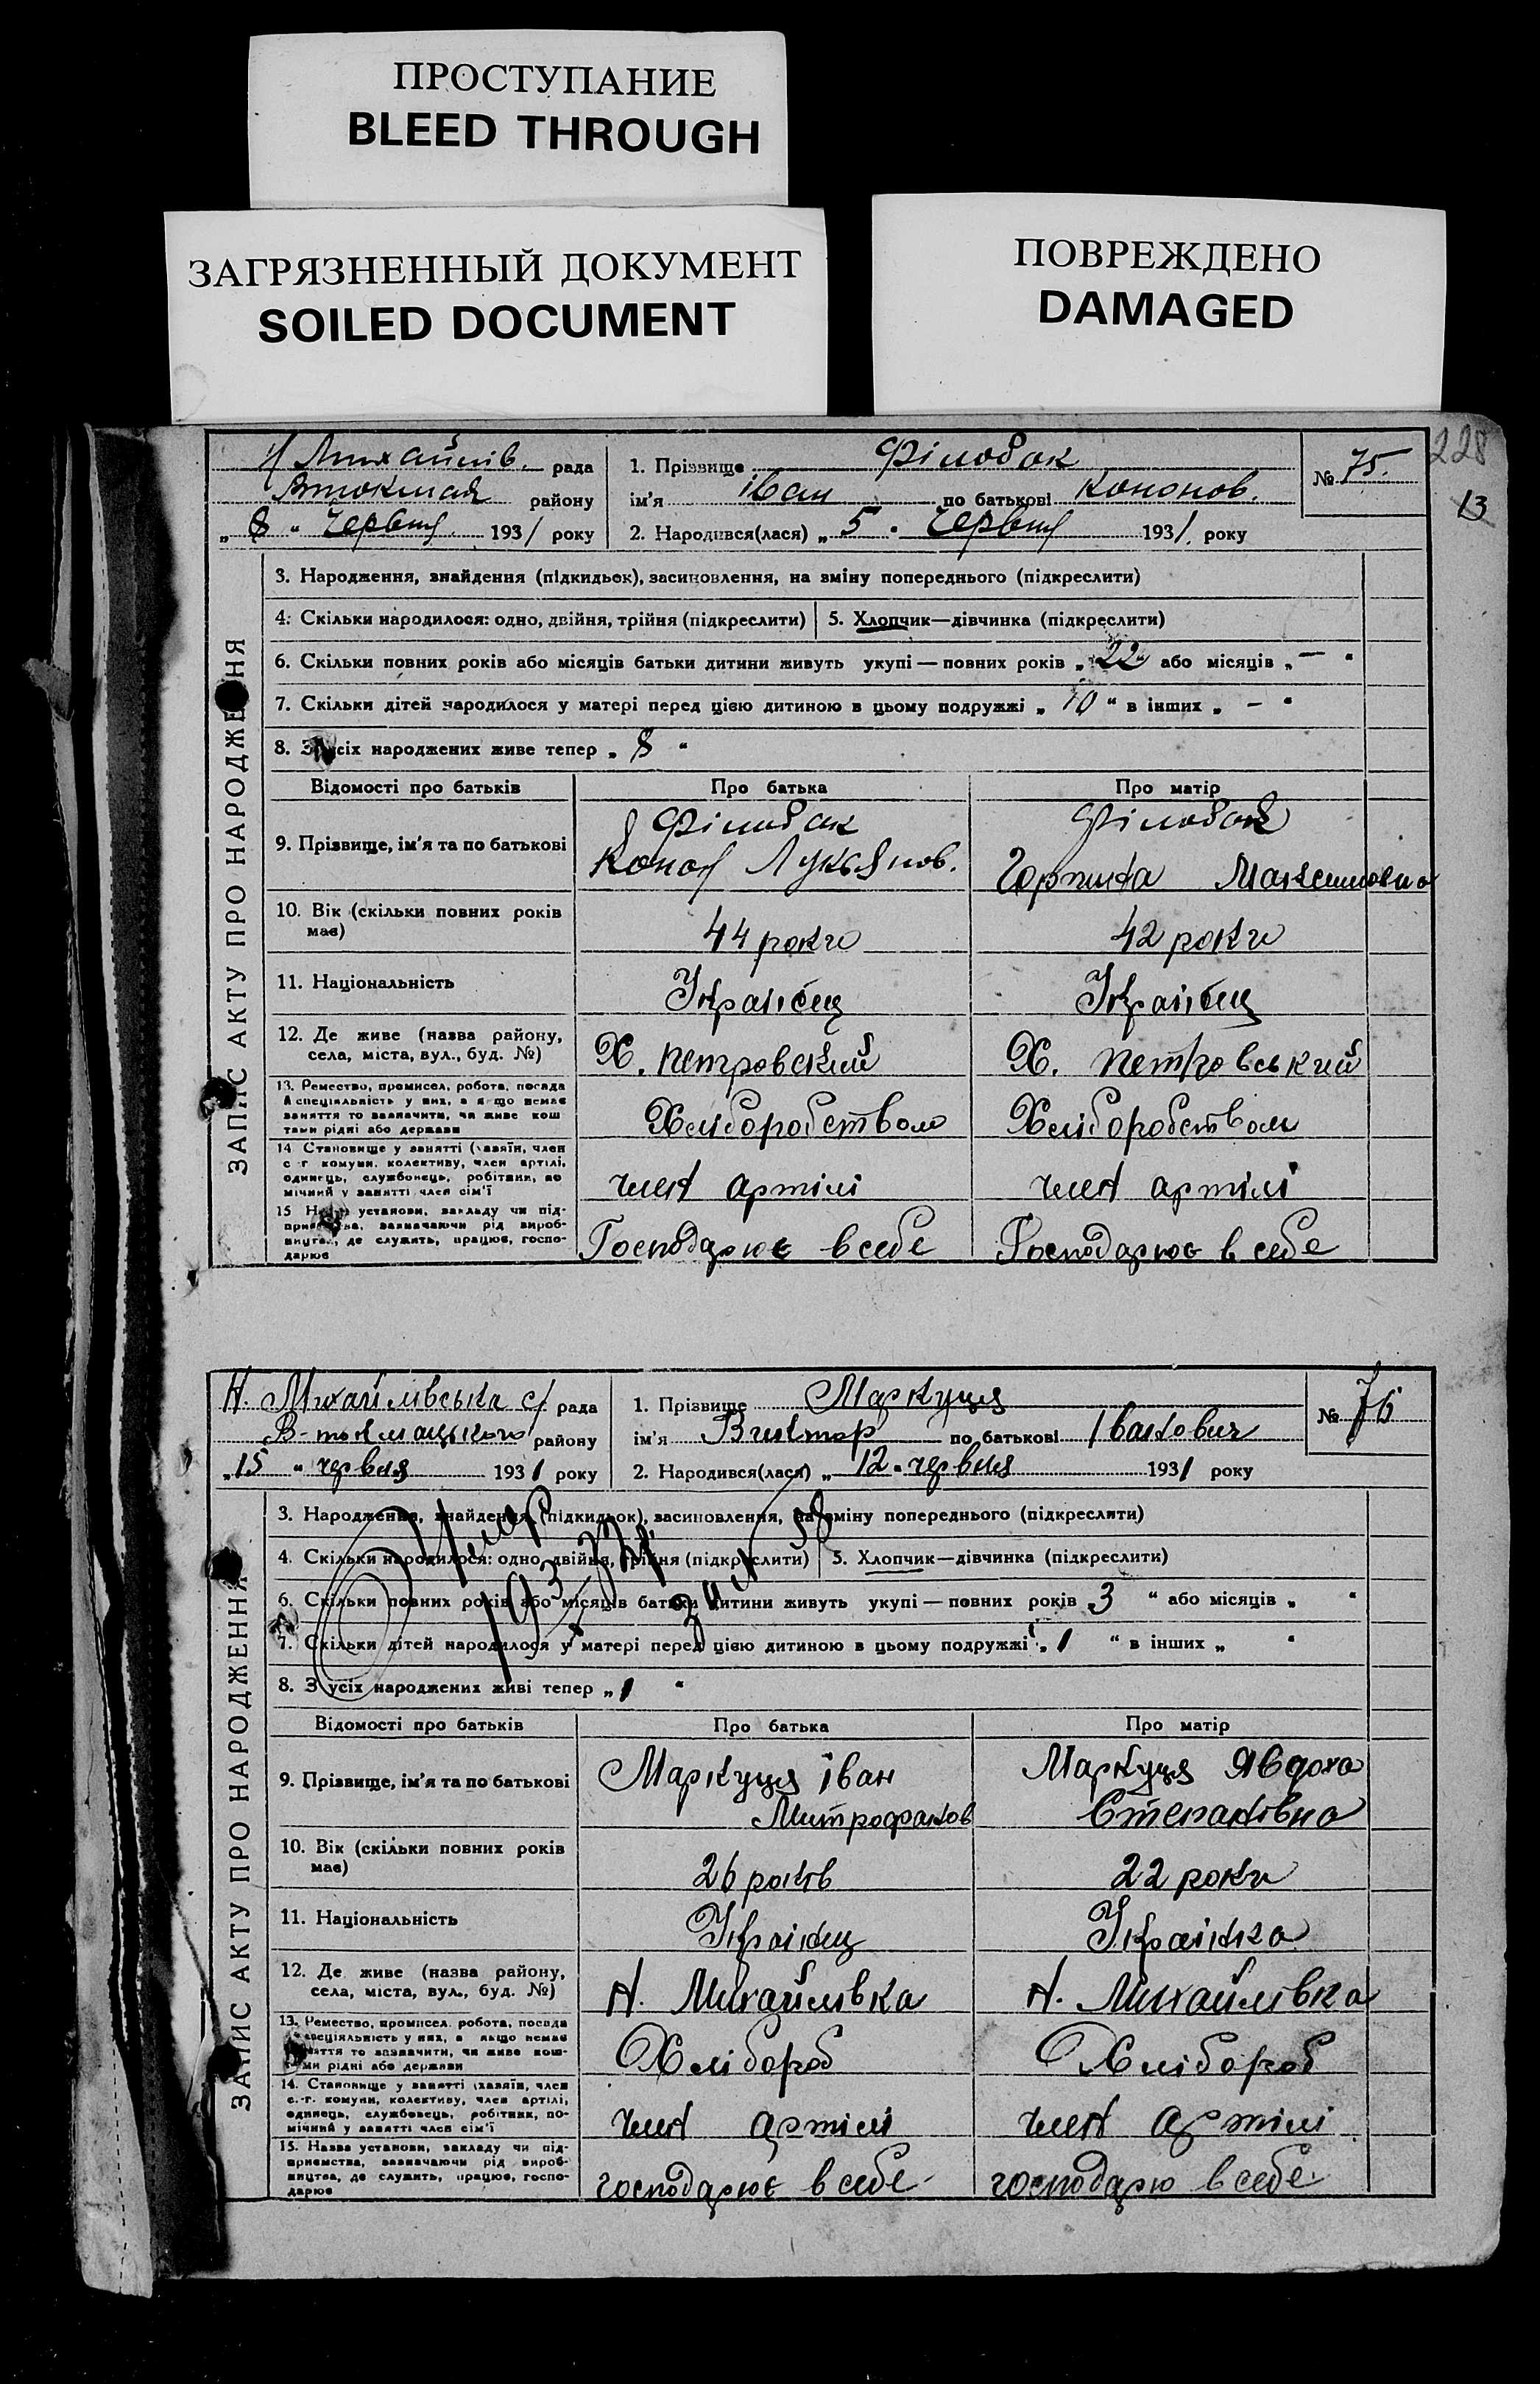 ПРОСТУПАНИЕ
BLEED THROUGH
ЗАГРЯЗНЕННЫЙ ДОКУМЕНТ
SOILED DOCUMENT
ПОВРЕЖДЕНО
DAMAGED
228
13
Н Михайлів. рада
района району
„ 8 “ червня 1931 року
1. Прізвище Філобок
ім’я Іван по батькові Кононов.
2. Народився(лася) „ 5 “ червня 1931. року
№ 75.
ЗАПИС АКТУ ПРО НАРОДЖЕННЯ
3. Народження, знайдення (підкидьок), засиновлення, на зміну попереднього (підкреслити)
4. Скільки народилося: одно, двійня, трійня (підкреслити) 5. Хлопчик—дівчинка (підкреслити)
6. Скільки повних років або місяців батьки дитини живуть укупі — повних років „ 22 “ або місяців „ — “
7. Скільки дітей народилося у матері перед цією дитиною в цьому подружжі „ 10 “ в інших „ — “
8. З усіх народжених живе тепер „ 8 “
Відомості про батьків Про батька Про матір
9. Прізвище, ім’я та по батькові
Філобок
Конон Лук'янов.
Філобок
Горпина Максимовна
10. Вік (скільки повних років
має)
44 роки 42 роки
11. Національність
Українец Українец
12. Де живе (назва району,
села, міста, вул., буд. №)
Х. Петровский Х. Петровський
13. Ремество, промисел, робота, посада
й спеціяльність у них, а якщо немає
заняття то зазначити, чи живе кош
тами рідні або держави
Хліборобством Хліборобством
14 Становище у занятті (хазяїн, член
с г комуни, колективу, член артілі,
одинець, службовець, робітник, по
мічний у занятті член сім’ї
член артілі член артілі
15 Назва установи, закладу чи під-
приємства, зазначаючи рід вироб-
ництва, де служить, працює, госпо-
дарює
Господарює в себе Господарює в себе
Н. Михайлівська с/ рада
В-токмацького району
„ 15 “ червня 1931 року
1. Прізвище Маркуця
ім’я Виктор по батькові Іванович
2. Народився(лася) „ 12 “ червня 1931 року
№ 76
ЗАПИС АКТУ ПРО НАРОДЖЕННЯ
3. Народження, знайдення (підкидьок), засиновлення, на зміну попереднього (підкреслити)
4. Скільки народилося: одно, двійня, трійня (підкреслити) 5. Хлопчик—дівчинка (підкреслити)
6. Скільки повних років або місяців батьки дитини живуть укупі — повних років „ 3 “ або місяців „ “
7. Скільки дітей народилося у матері перед цією дитиною в цьому подружжі „ 1 “ в інших „ “
8. З усіх народжених живі тепер „ 1 “
Помер
Відомості про батьків Про батька Про матір
9. Прізвище, ім’я та по батькові
Маркуця Іван
Митрофанов
Маркуця Явдоха
Степанівна
10. Вік (скільки повних років
має)
26 років 22 роки
11. Національність
Українец Українка
12. Де живе (назва району,
села, міста, вул., буд. №)
Н. Михайлівка Н. Михайлівка
13. Ремество, промисел, робота, посада
й спеціяльність у них, а якщо немає
заняття то зазначити, чи живе кош-
тами рідні або держави
Хлібороб Хлібороб
14. Становище у занятті (хазяїн, член
с.-г. комуни, колективу, член артілі,
одинець, службовець, робітник, по-
мічний у занятті член сім’ї
член артілі член артілі
15. Назва установи, закладу чи під-
приємства, зазначаючи рід вироб-
ництва, де служить, працює, госпо-
дарює
господарює в себе господарю в себе